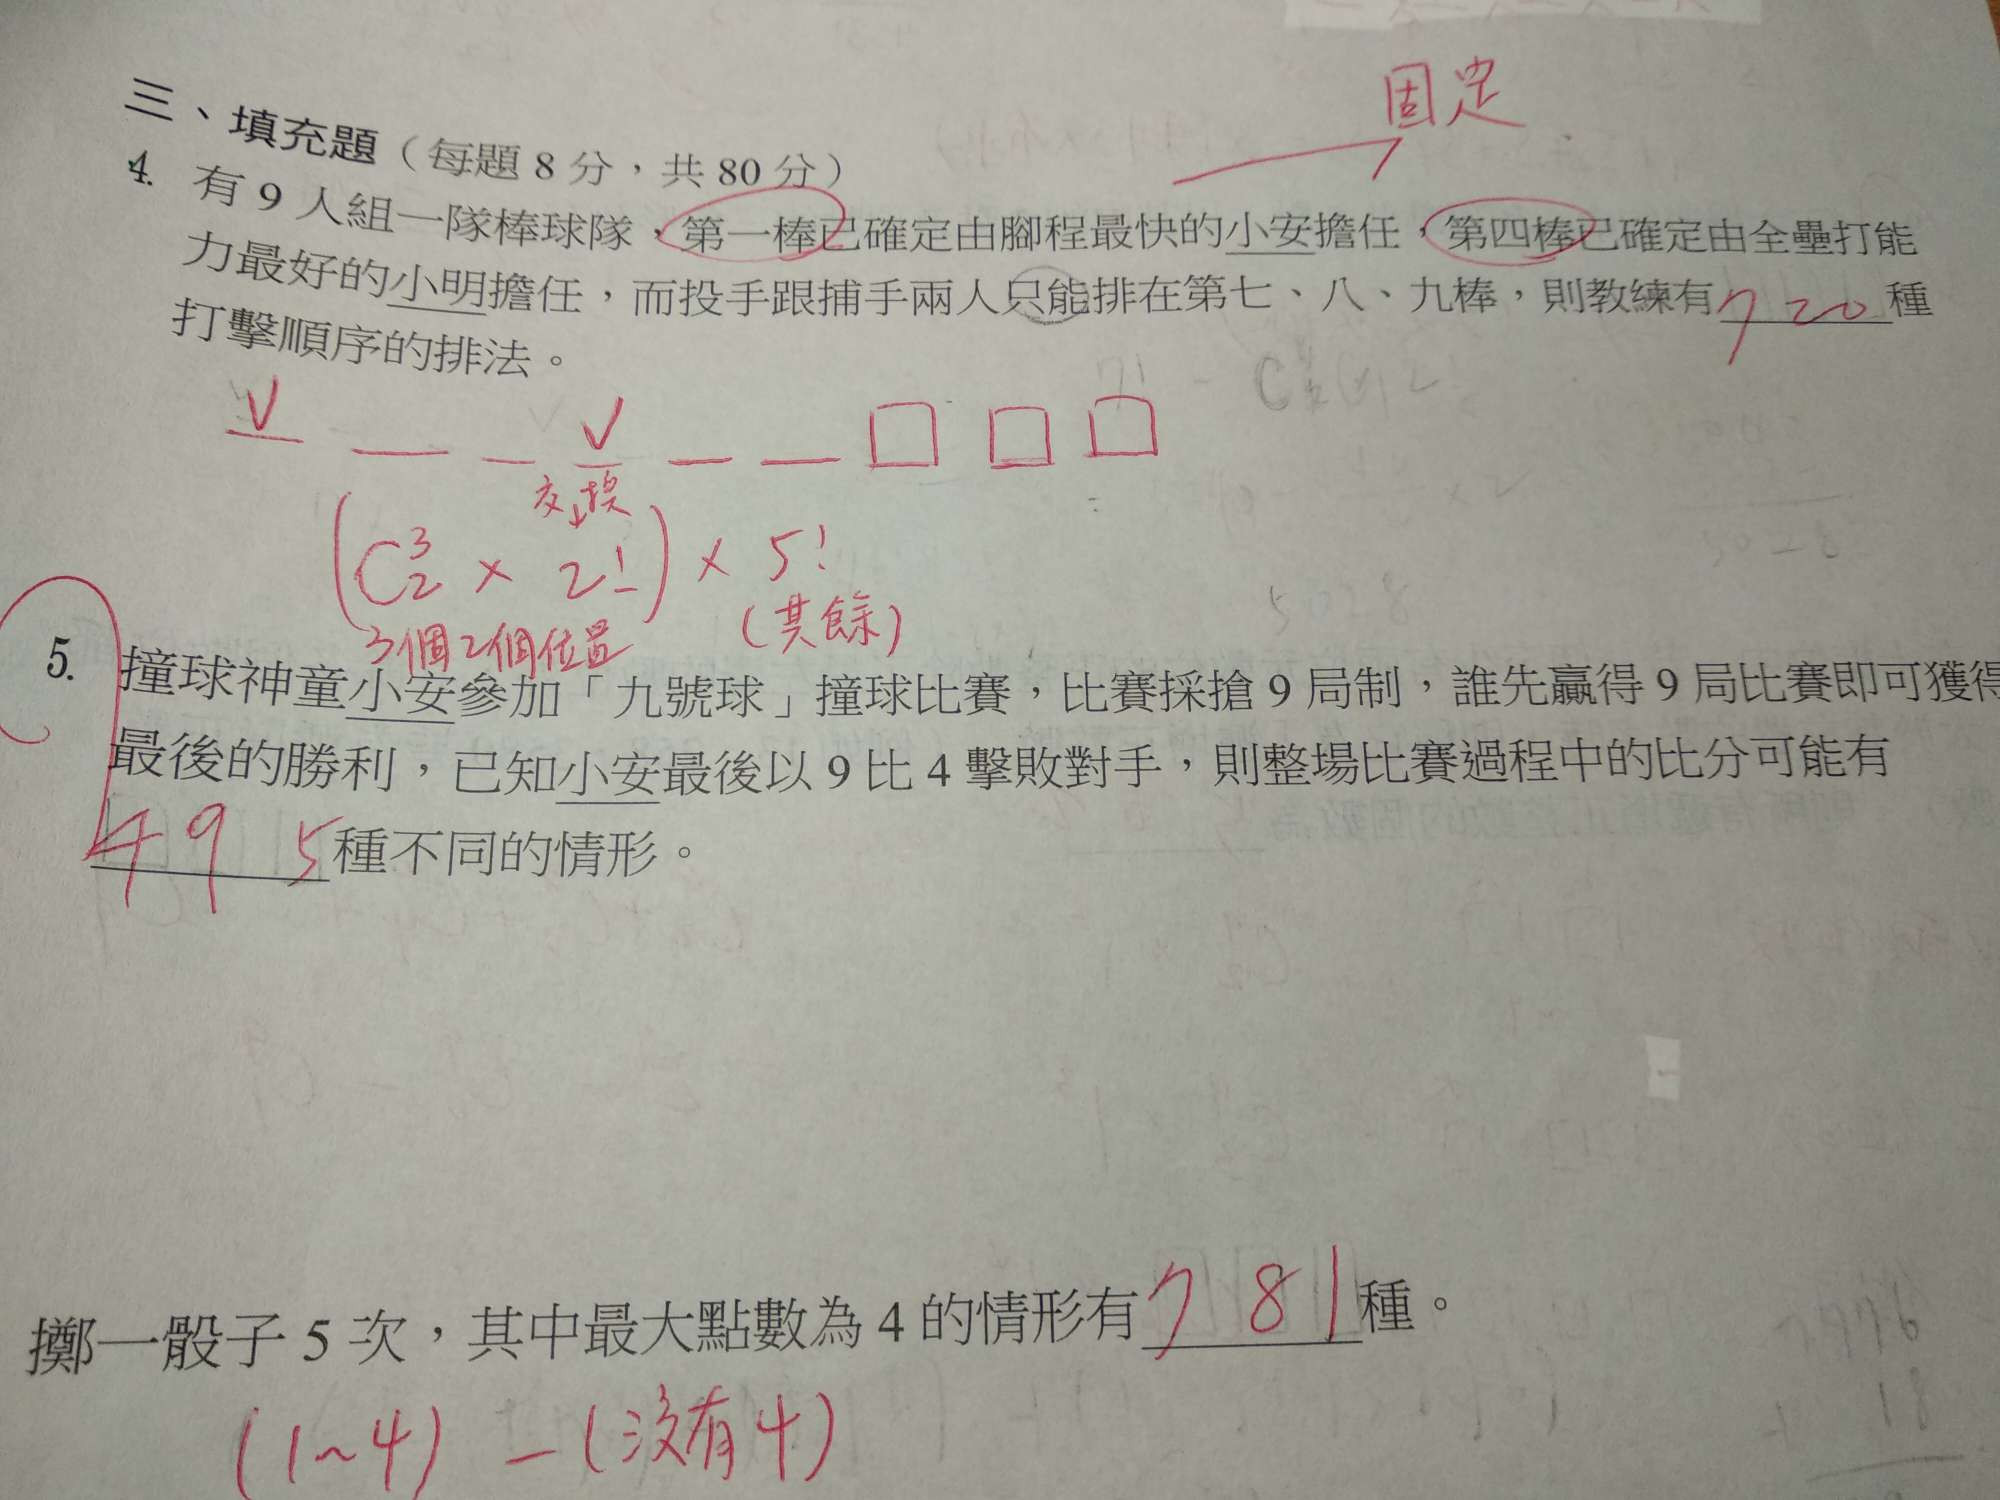 固定
三、填充題（每題 8 分，共 80 分）
4. 有 9 人組一隊棒球隊，第一棒已確定由腳程最快的小安擔任，第四棒已確定由全壘打能
力最好的小明擔任，而投手跟捕手兩人只能排在第七、八、九棒，則教練有 720 種
打擊順序的排法。
交換
(C³₂ × 2!) × 5!
3個2個位置 (其餘)
5. 撞球神童小安參加「九號球」撞球比賽，比賽採搶 9 局制，誰先贏得 9 局比賽即可獲得
最後的勝利，已知小安最後以 9 比 4 擊敗對手，則整場比賽過程中的比分可能有
495 種不同的情形。
擲一骰子 5 次，其中最大點數為 4 的情形有 781 種。
(1~4) - (沒有4)